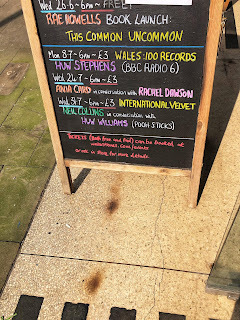 Wed 26·6~6pm~ FREE!
RAE HOWELLS BOOK LAUNCH:
THIS COMMON UNCOMMON
Mon 8·7~6pm~£3 WALES: 100 RECORDS
HUW STEPHENS (BBC RADIO 6)
Wed 24·7~6pm~£3
ANIA CARD in conversation with RACHEL DAWSON
Wed 31·7~6pm~£3 INTERNATIONAL VELVET
NEIL COLLINS in conversation with
HUW WILLIAMS (POOH STICKS)
TICKETS (Both free and paid) can be booked at
or ask in store for more details.